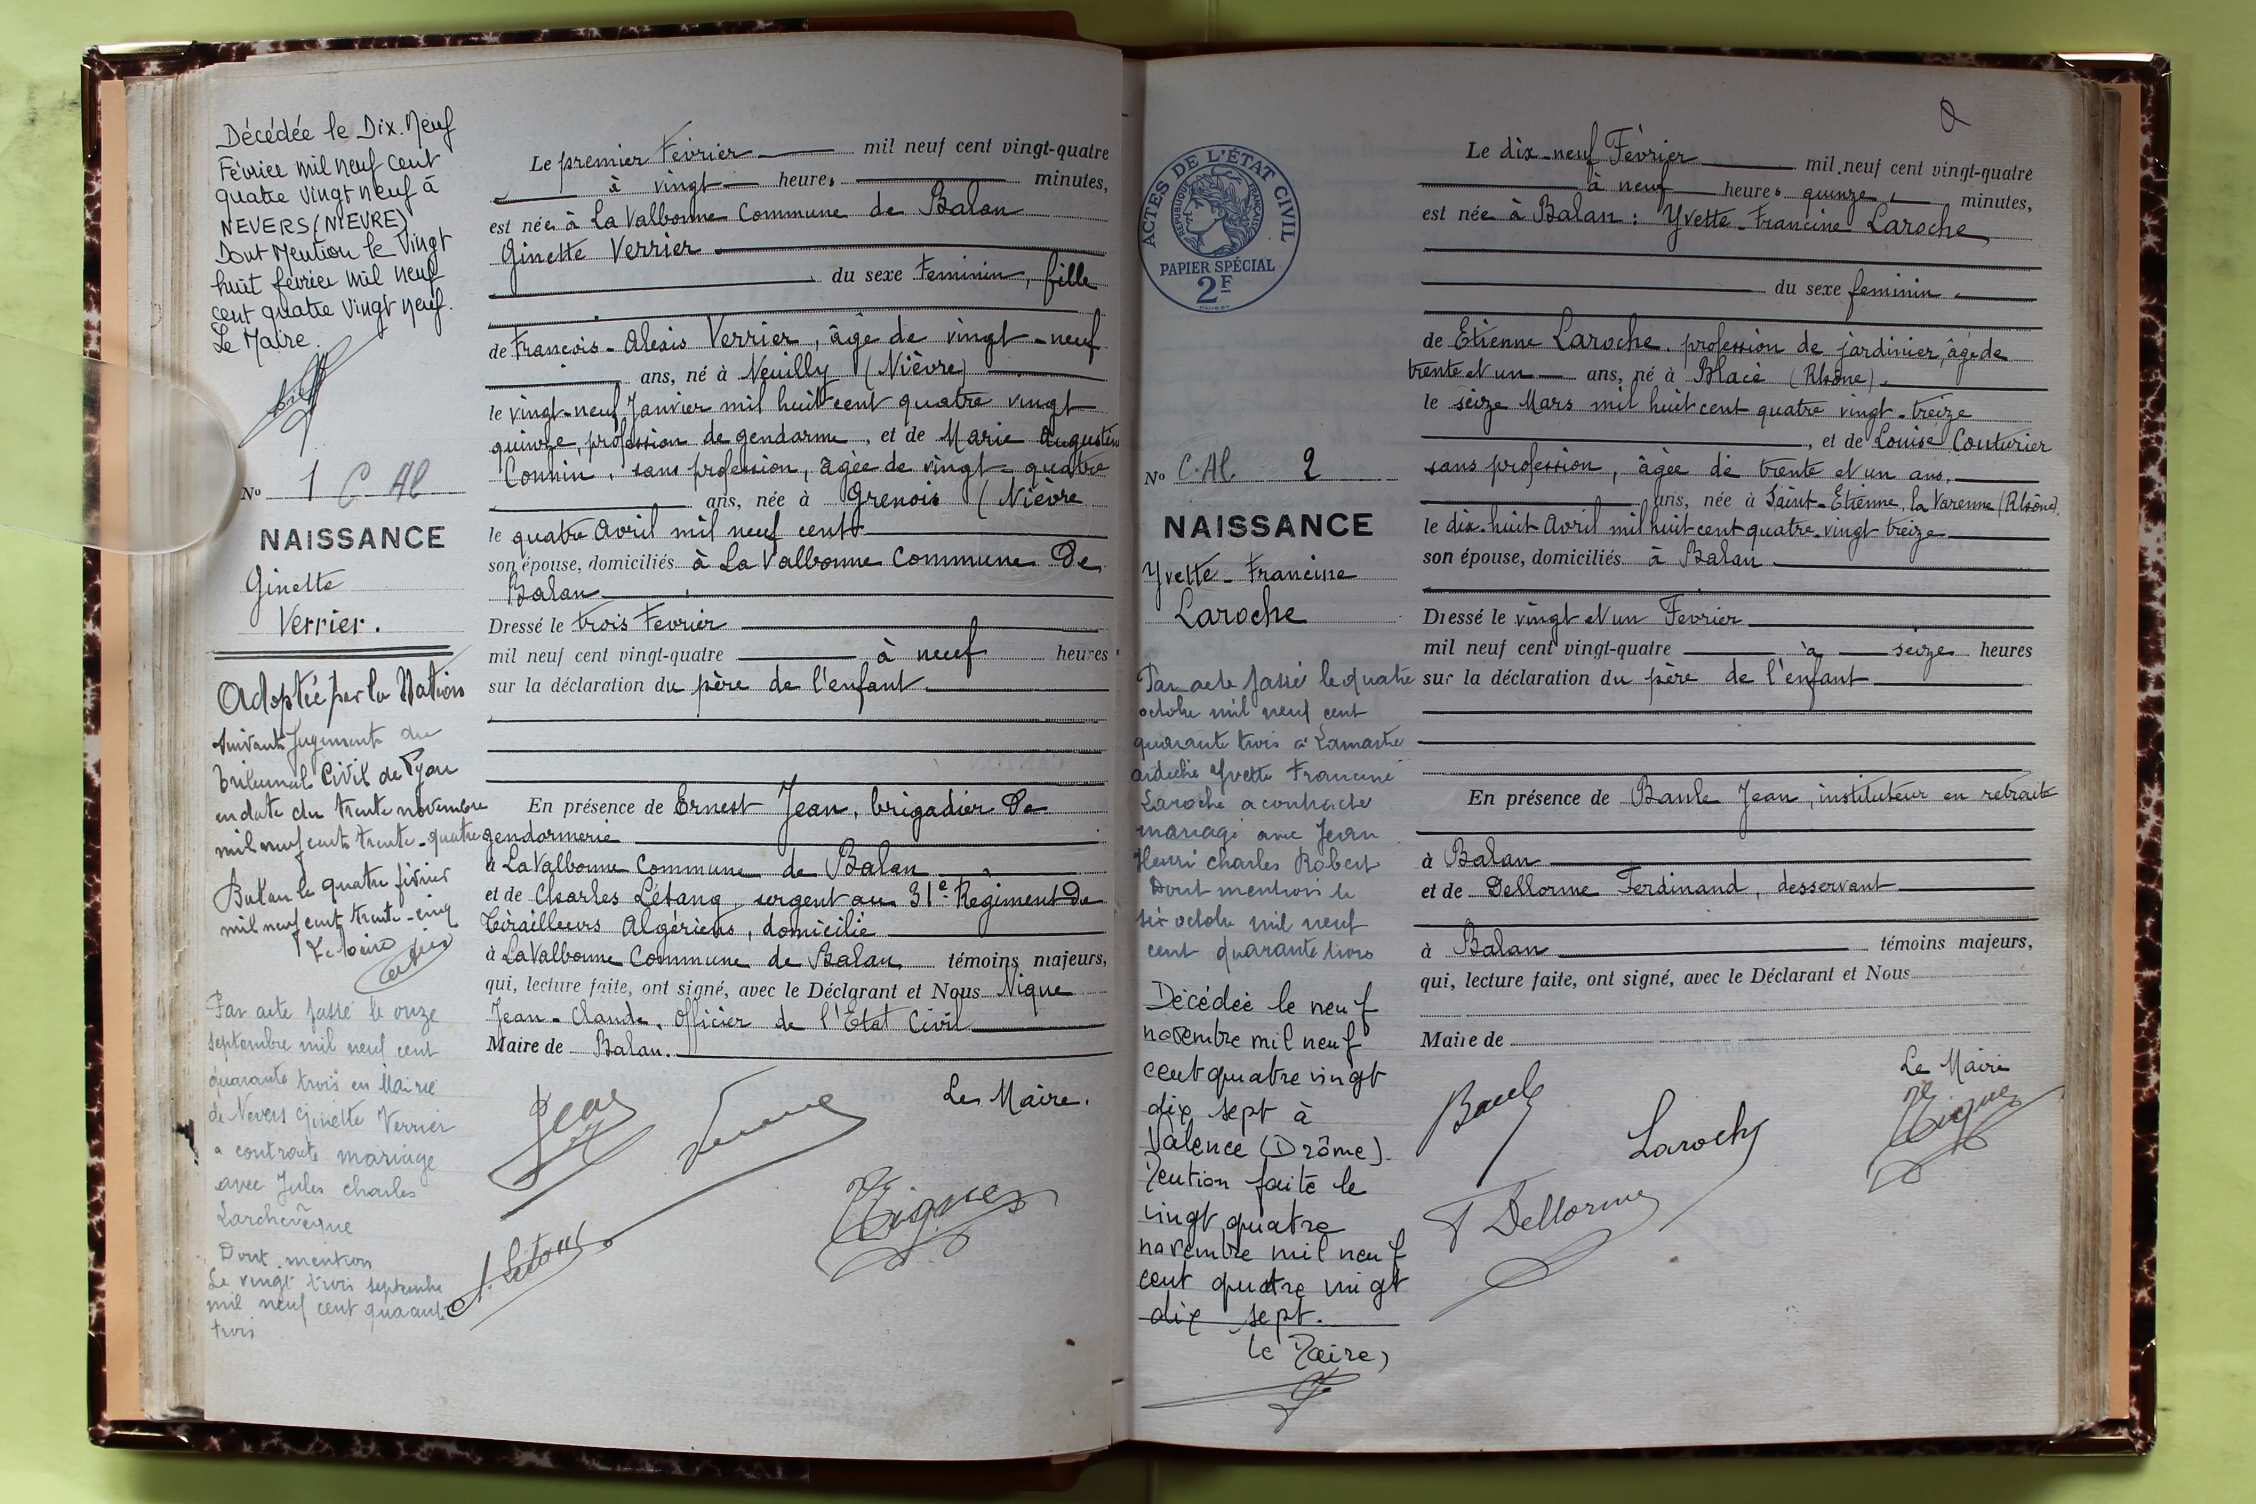 Décédée le Dix.Neuf
Février mil neuf cent
quatre vingt neuf à
NEVERS (NIEVRE)
Dont Mention le Vingt
huit février mil neuf
cent quatre vingt neuf.
Le Maire.
No 1 C. Al
NAISSANCE
Ginette
Verrier.
Adoptée par la Nation
suivant Jugement du
Tribunal Civil de
en date du trente novembre
mil neuf cent trente-quatre
Balan le quatre février
mil neuf cent trente-cinq
Le Maire
Par acte passé le onze
septembre mil neuf cent
quarante trois en Mairie
de Nevers Ginette Verrier
a contracté mariage
avec Jules Charles
Larchevêque
Dont mention
Le vingt trois septembre
mil neuf cent quarante
trois
Le premier Fevrier mil neuf cent vingt-quatre
à vingt heures minutes,
est née à La Valbonne Commune de Balan
Ginette Verrier
du sexe Feminin, fille
de François-Alexis Verrier, âgé de vingt-neuf
ans, né à Neuilly (Nièvre)
le vingt-neuf Janvier mil huit cent quatre vingt
quinze, profession de gendarme, et de Marie Augustin
Connin, sans profession, âgée de vingt-quatre
ans, née à Grenois (Nièvre
le quatre Avril mil neuf cent
son épouse, domiciliés à La Valbonne Commune De
Balan
Dressé le trois Fevrier
mil neuf cent vingt-quatre à neuf heures
sur la déclaration du père de l'enfant
En présence de Ernest Jean, brigadier De
gendarmerie
à La Valbonne Commune de Balan
et de Charles Létang, sergent au 31e Régiment De
Tirailleurs Algériens, domicilié
à La Valbonne Commune de Balan témoins majeurs,
qui, lecture faite, ont signé, avec le Déclarant et Nous Nique
Jean-Claude, Officier de l'Etat Civil
Maire de Balan.
Le Maire.
2
ACTES DE L'ÉTAT CIVIL
RÉPUBLIQUE FRANÇAISE
PAPIER SPÉCIAL
2F
No C.Al. 2
NAISSANCE
Yvette-Francine
Laroche
Par acte passé le quatre
octobre mil neuf cent
quarante trois à Lamastre
ardèche Yvette Francine
Laroche a contracté
mariage avec Jean
Henri Charles Robert
Dont mention le
six octobre mil neuf
cent quarante trois
Décédée le neuf
novembre mil neuf
cent quatre vingt
dix sept à
Valence (Drôme).
Mention faite le
vingt quatre
novembre mil neuf
cent quatre vingt
dix sept.
Le Maire,
Le dix-neuf Février mil neuf cent vingt-quatre
à neuf heures quinze minutes,
est née à Balan : Yvette-Francine Laroche
du sexe feminin
de Etienne Laroche, profession de jardinier, âgé de
trente et un ans, né à Blacé (Rhône).
le seize Mars mil huit cent quatre vingt-treize
, et de Louise Couturier
sans profession, âgée de trente et un ans.
ans, née à Saint-Etienne, la Varenne (Rhône).
le dix-huit Avril mil huit cent quatre-vingt-treize
son épouse, domiciliés à Balan
Dressé le vingt et un Fevrier
mil neuf cent vingt-quatre à seize heures
sur la déclaration du père de l'enfant
En présence de Banle Jean, instituteur en retraite
à Balan
et de Dellorme Ferdinand, desservant
à Balan témoins majeurs,
qui, lecture faite, ont signé, avec le Déclarant et Nous
Maire de
Le Maire
Laroche
F Dellorme